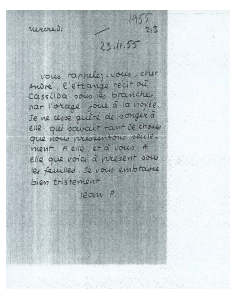 1955
mercredi
213
23.11.55
vous rappelez-vous, cher
André, l'étrange récit où
Cassilda sous les branches
par l'orage joue à la noyée.
Je ne cesse guère de songer à
elle qui savait tant de choses
que nous pressentons seule-
ment. A elle et à vous A
elle que voici à présent sous
les feuilles. Je vous embrasse
bien tristement
Jean P